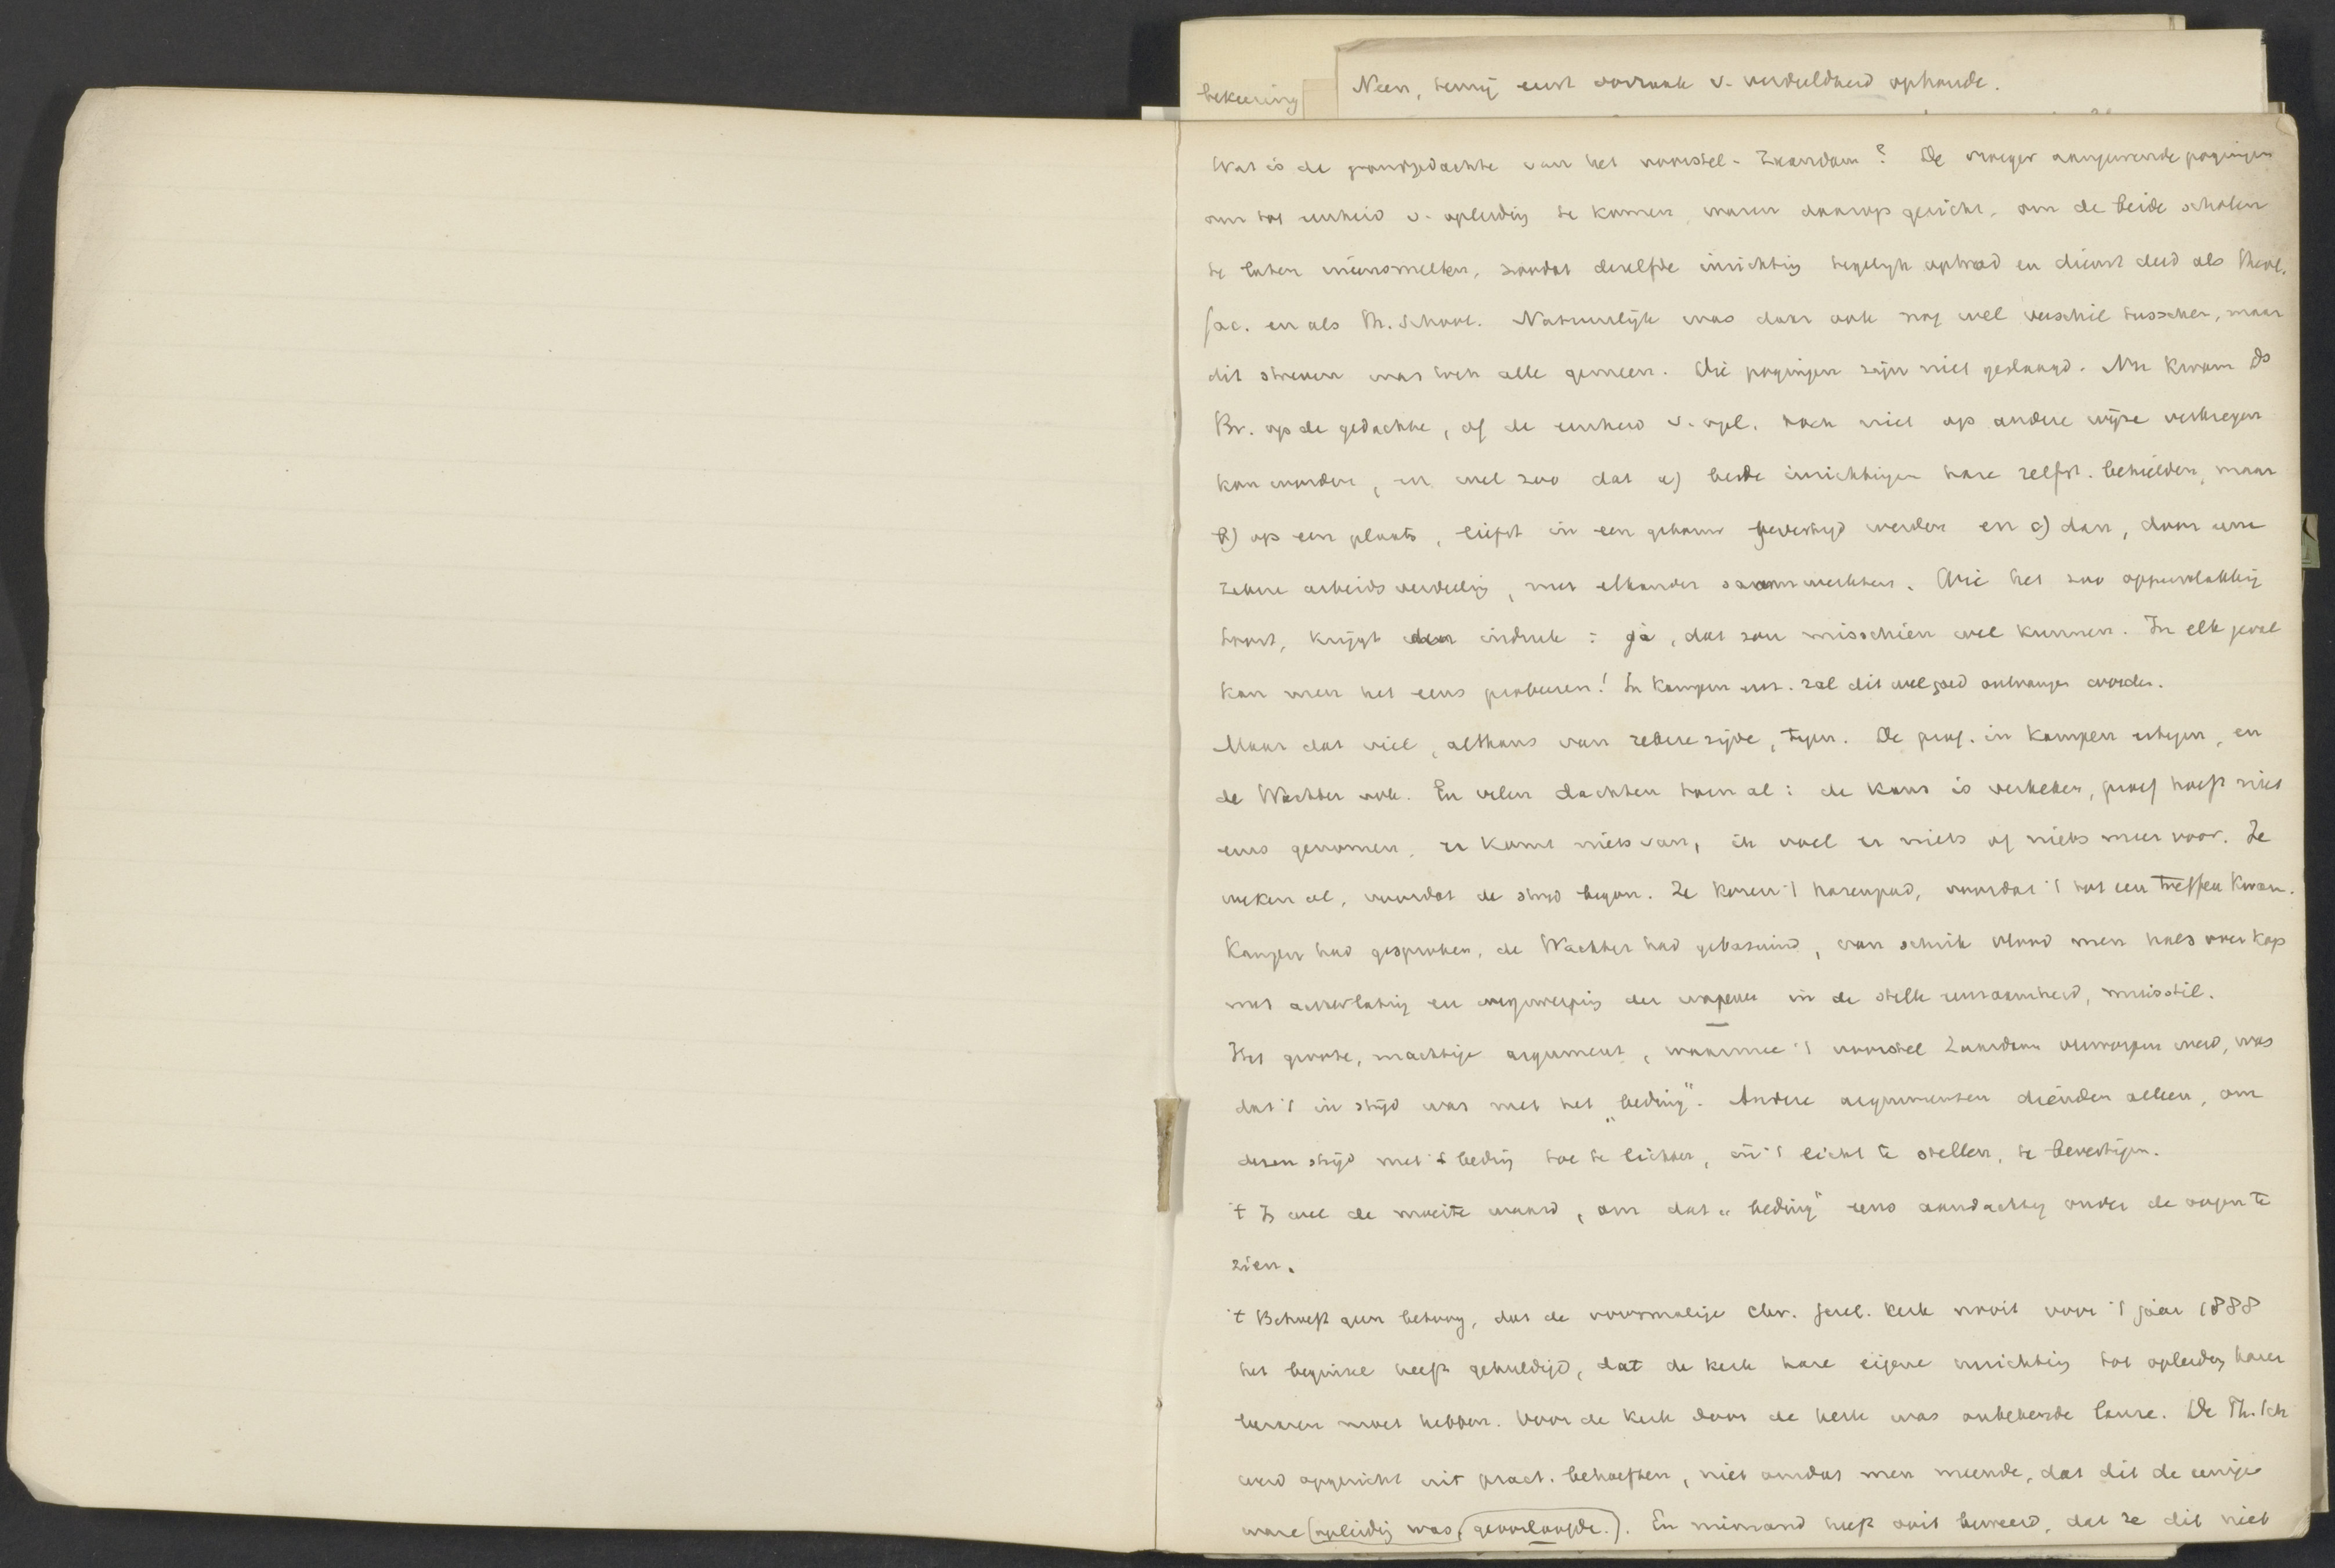 bekeering
Neen, tenzij eerst oorzaak v. verdeeldheid ophoude.
Wat is de grondgedachte van het voorstel-Zaandam? De vroeger aangewende pogingen
om tot eenheid v. opleiding te komen, waren daarop gericht, om de beide scholen
te laten ineensmelten, zoodat dezelfde inrichting tegelijk optrad en dienst deed als theol.
fac. en als Th. School. Natuurlijk was daar ook nog wel verschil tusschen, maar
dit streven was toch alle gemeen. Die pogingen zijn niet geslaagd. Nu kwam Ds
Br. op de gedachte, of de eenheid v. opl. toch niet op andere wijze verkregen
kon worden, en wel zoo dat a) beide inrichtingen hare zelfst. behielden, maar
b) op een plaats, liefst in een gebouw gevestigd werden en c) dan, door eene
zekere arbeidsverdeeling, met elkander samenwerkten. Wie het zoo oppervlakkig
hoort, krijgt den indruk: ja, dat zou misschien wel kunnen. In elk geval
kan men het eens probeeren! In Kampen enz. zal dit wel goed ontvangen worden.
Maar dat viel, althans van zekere zijde, tegen. De prof. in Kampen ertegen, en
de Wachter ook. En velen dachten toen al: de kans is verkeken, proef hoeft niet
eens genomen, er komt niets van, ik voel er niets of niets meer voor. Ze
weken al, voordat de strijd begon. Ze kozen 't hazenpad, voordat 't tot een treffen kwam.
Kampen had gesproken, de Wachter had gebazuind, van schrik vlood men hals over kop
met achterlating en wegwerping der wapenen in de stille eenzaamheid, muisstil.
Het groote, machtige argument, waarmee 't voorstel Zaandam verworpen werd, was
dat 't in strijd was met het „beding". Andere argumenten dienden alleen, om
dezen strijd met 't beding toe te lichten, in 't licht te stellen, te bevestigen.
't Is wel de moeite waard, om dat „beding" eens aandachtig onder de oogen te
zien.
't Behoeft geen betoog, dat de voormalige Chr. Geref. Kerk nooit voor 't jaar 1888
het beginsel heeft gehuldigd, dat de kerk hare eigene inrichting tot opleiding harer
leeraren moet hebben. Voor de kerk door de kerk was onbekende leuze. De Th. Sch
werd opgericht uit pract. behoeften, niet omdat men meende, dat dit de eenige
ware (opleiding was, geoorloofde.). En niemand heeft ooit beweerd, dat ze dit niet